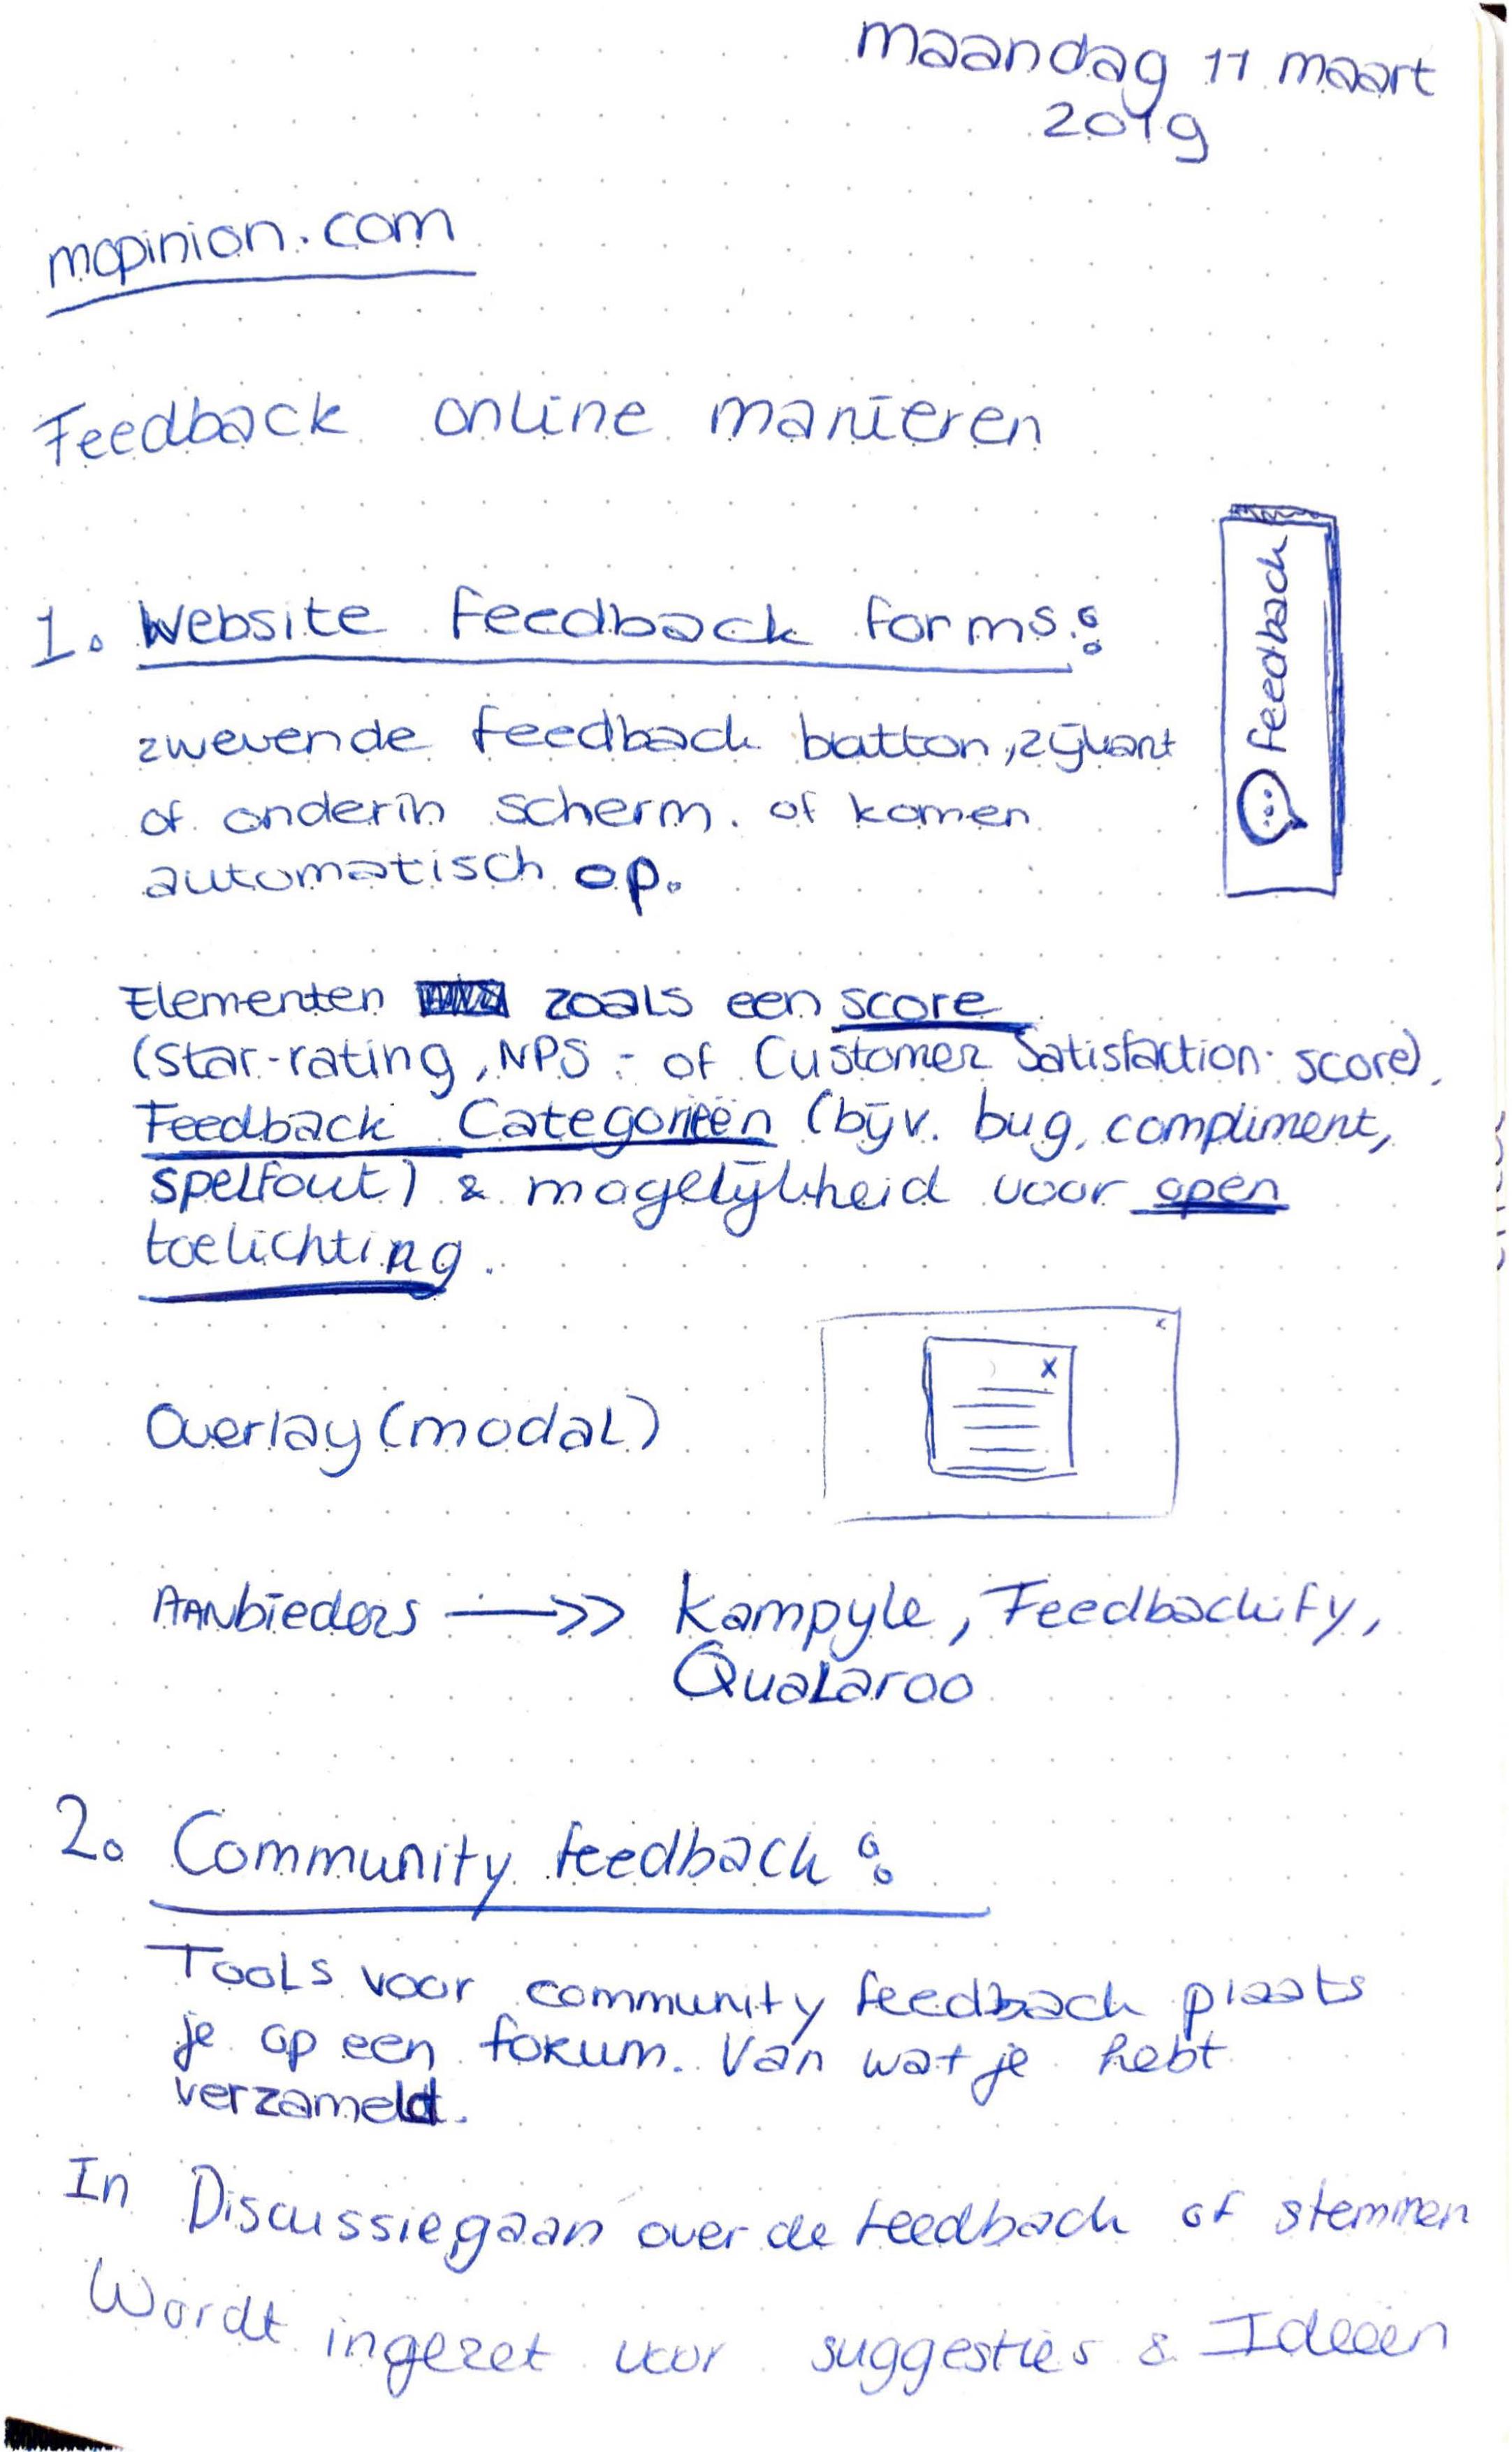 maandag 11 maart
2019
mopinion.com
Feedback online manieren
1. Website feedback forms:
zwevende feedback button, zijkant
of onderin scherm. of komen
automatisch op.
feedback
Elementen zoals een score
(star-rating, NPS - of Customer Satisfaction score).
Feedback Categorieën (bijv. bug, compliment,
spelfout) & mogelijkheid voor open
toelichting.
x
Overlay (modal)
AANbieders →>> Kampyle, Feedbackify,
Qualaroo
2. Community feedback:
Tools voor community feedback plaats
je op een forum. Van wat je hebt
verzameld.
In Discussie gaan over de feedback of stemmen
Wordt ingezet voor suggesties & Ideeën